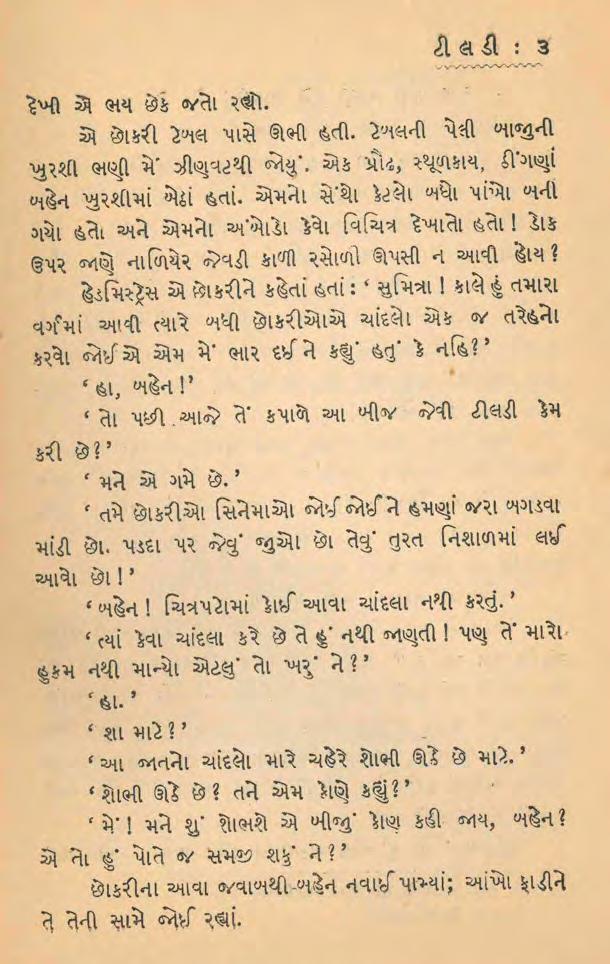 ટીલડી : ૩
દેખી એ ભય છેક જતો રહ્યો.
એ છોકરી ટેબલ પાસે ઊભી હતી. ટેબલની પેલી બાજુની
ખુરશી ભણી મેં ઝીણવટથી જોયું. એક પ્રૌઢ, સ્થૂળકાય, ઠીંગણાં
બહેન ખુરશીમાં બેઠાં હતાં. એમનો સેંથો કેટલો બધો પાંખો બની
ગયો હતો અને એમનો અંબોડો કેવો વિચિત્ર દેખાતો હતો! ડોક
ઉપર જાણે નાળિયેર જેવડી કાળી રસોળી ઊપસી ન આવી હોય?
હેડમિસ્ટ્રેસ એ છોકરીને કહેતાં હતાં: ‘ સુમિત્રા ! કાલે હું તમારા
વર્ગમાં આવી ત્યારે બધી છોકરીઓએ ચાંદલો એક જ તરેહનો
કરવો જોઈએ એમ મેં ભાર દઈને કહ્યું હતું કે નહિ?’
‘ હા, બહેન !’
‘ તો પછી આજે તેં કપાળે આ બીજ જેવી ટીલડી કેમ
કરી છે?’
‘ મને એ ગમે છે.’
‘ તમે છોકરીઓ સિનેમાઓ જોઈ જોઈને હમણાં જરા બગડવા
માંડી છો. પડદા પર જેવું જુઓ છો તેવું તુરત નિશાળમાં લઈ
આવો છો !’
‘ બહેન ! ચિત્રપટોમાં કોઈ આવા ચાંદલા નથી કરતું.’
‘ ત્યાં કેવા ચાંદલા કરે છે તે હું નથી જાણતી ! પણ તેં મારો
હુકમ નથી માન્યો એટલું તો ખરું ને ?’
‘ હા. ’
‘ શા માટે ?’
‘ આ જાતનો ચાંદલો મારે ચહેરે શોભી ઊઠે છે માટે.’
‘ શોભી ઊઠે છે? તને એમ કોણે કહ્યું?’
‘ મેં ! મને શું શોભશે એ બીજું કોણ કહી જાય, બહેન?
એ તો હું પોતે જ સમજી શકું ને?’
છોકરીના આવા જવાબથી બહેન નવાઈ પામ્યાં; આંખો ફાડીને
તે તેની સામે જોઈ રહ્યાં.